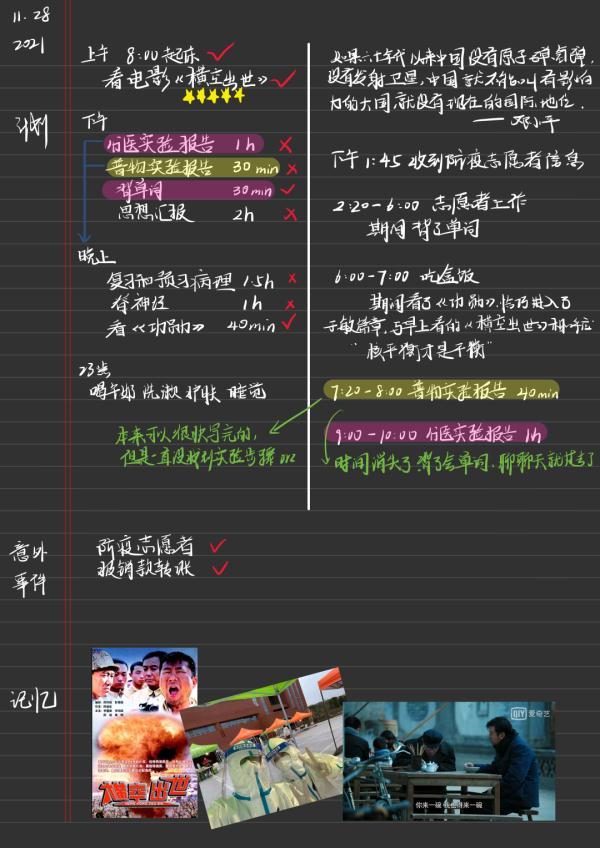 11.28
2021
上午 8:00 起床
看电影《横空出世》
计划
下午
分医实验报告 1h
普物实验报告 30 min
背单词 30 min
思想汇报 2h
晚上
复习和预习病理 1.5h
脊神经 1h
看《功勋》 40 min
23点
喝牛奶 洗漱 护肤 睡觉
本来可以很快写完的,
但是一直没找到实验步骤 orz
如果六十年代以来中国没有原子弹、氢弹,
没有发射卫星,中国就不能叫有影响
力的大国,就没有现在的国际地位。
——邓小平
下午 1:45 收到防疫志愿者信息
2:20-6:00 志愿者工作
期间背了单词
6:00-7:00 吃盒饭
期间看了《功勋》,恰巧进入了
于敏篇章,与早上看的《横空出世》相呼应
"核平衡才是平衡"
7:20-8:00 普物实验报告 40 min
9:00-10:00 分医实验报告 1h
时间消失了 背了会单词、聊聊天就过去了
意外
事件
防疫志愿者
报销款转账
记忆
横空出世
爱奇艺
你来一碗 我也得来一碗